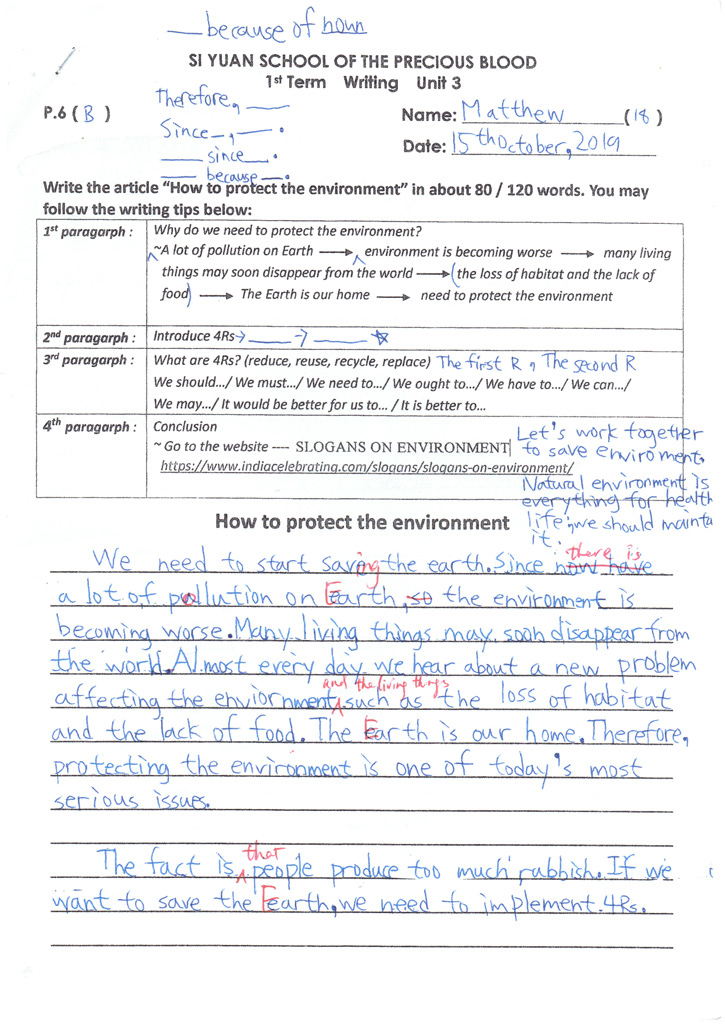 __ because of noun
SI YUAN SCHOOL OF THE PRECIOUS BLOOD
1st Term Writing Unit 3
P.6 ( B )
Therefore, ___
Since __, ___.
___ since ___.
___ because ___.
Name: Matthew (18)
Date: 15th October, 2019
Write the article “How to protect the environment” in about 80 / 120 words. You may
follow the writing tips below:
1st paragarph :
Why do we need to protect the environment?
~A lot of pollution on Earth → environment is becoming worse → many living
things may soon disappear from the world → (the loss of habitat and the lack of
food) → The Earth is our home → need to protect the environment
2nd paragarph :
Introduce 4Rs → ___ → ___ ☆
3rd paragarph :
What are 4Rs? (reduce, reuse, recycle, replace) The first R, The second R
We should.../ We must.../ We need to.../ We ought to.../ We have to.../ We can.../
We may.../ It would be better for us to... / It is better to...
4th paragarph :
Conclusion
~ Go to the website ---- SLOGANS ON ENVIRONMENT
https://www.indiacelebrating.com/slogans/slogans-on-environment/
Let's work together
to save enviroment.
Natural environment is
everything for health
life, we should mainta
it.
How to protect the environment
We need to start saving the earth. Since now have there is
a lot of pollution on Earth, so the environment is
becoming worse. Many living things may soon disappear from
the world. Almost every day we hear about a new problem
affecting the enviornment and the living things such as the loss of habitat
and the lack of food. The Earth is our home. Therefore,
protecting the environment is one of today's most
serious issues.
The fact is that people produce too much rubbish. If we
want to save the Earth, we need to implement 4Rs.